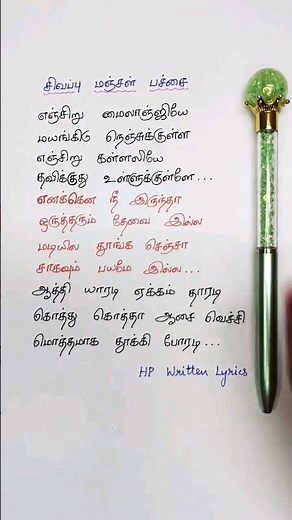 சிவப்பு மஞ்சள் பச்சை
எஞ்சிறு மைலாஞ்ஜியே
மயங்கிடு நெஞ்சுக்குள்ள
எஞ்சிறு கள்ளலியே
தவிக்குது உள்ளுக்குள்ளே...
எனக்கென நீ இருந்தா
ஒருத்தரும் தேவை இல்ல
மடியில தூங்க செஞ்சா
சாகவும் பயமே இல்ல...
ஆத்தி யாரடி ஏக்கம் தாரடி
கொத்து கொத்தா ஆசை வெச்சி
மொத்தமாக தூக்கி போரடி...
HP Written Lyrics